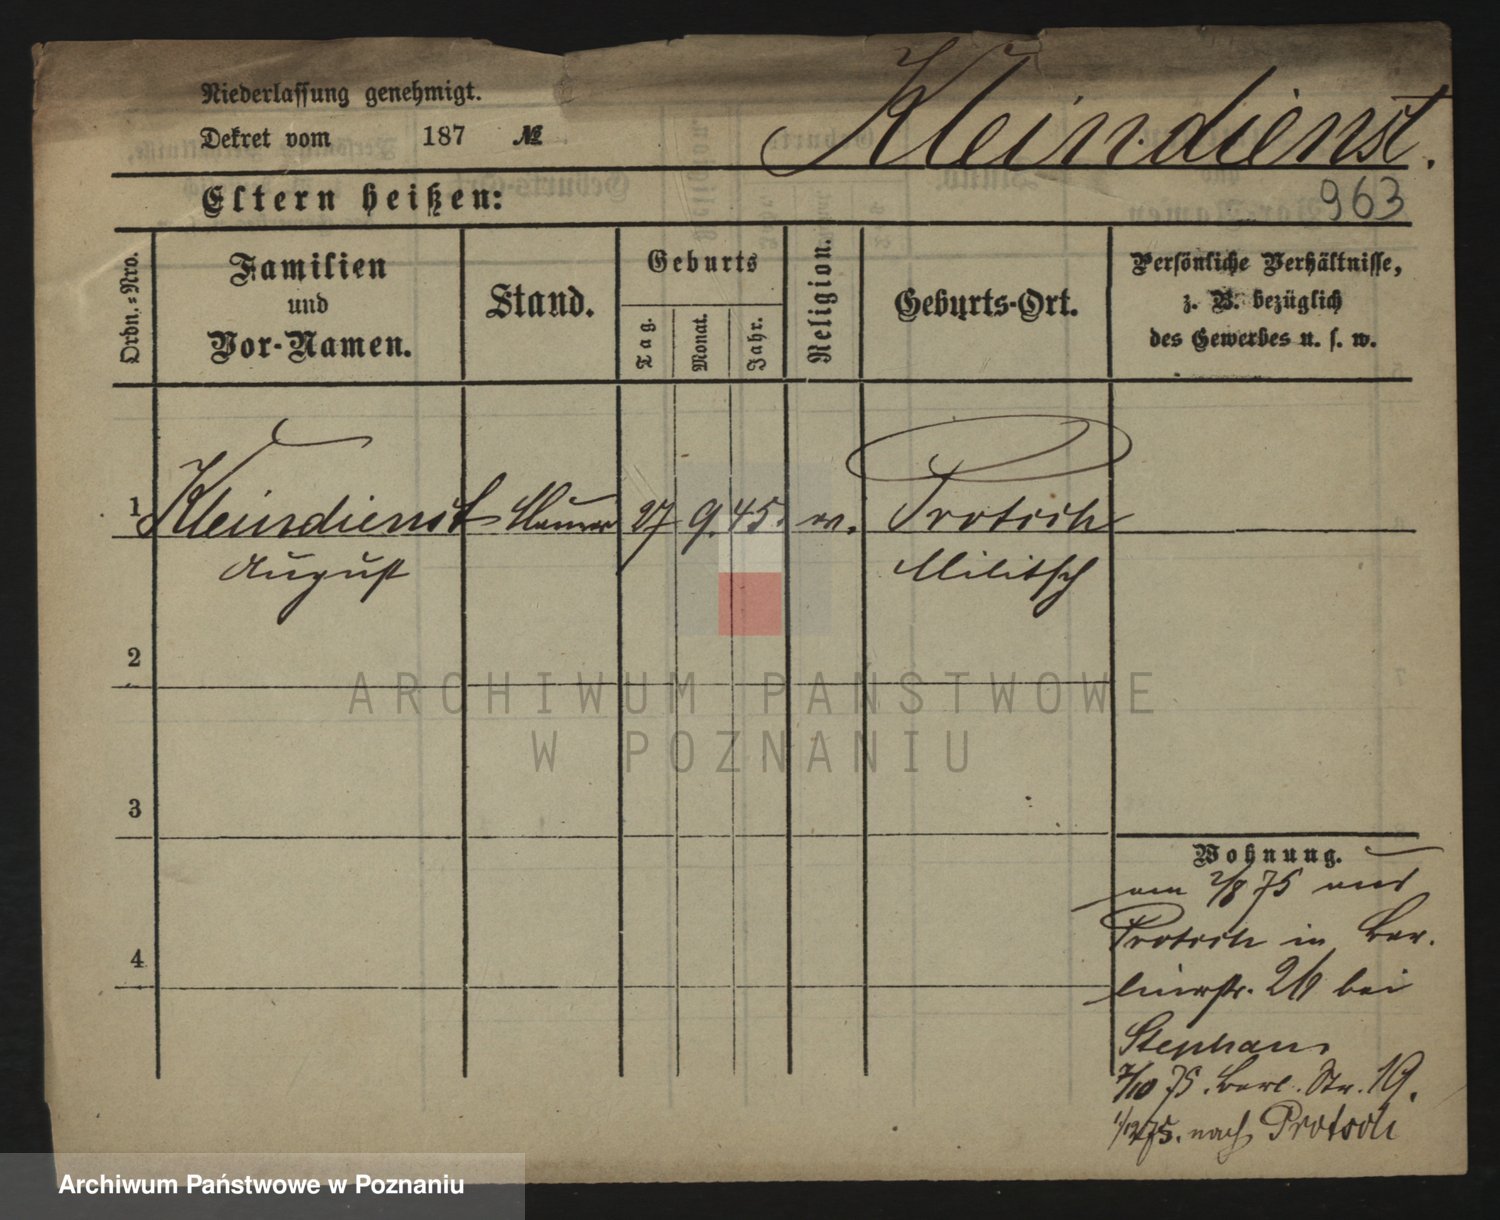 Niederlassung genehmigt.
Dekret vom 187 №
Kleindienst.
Eltern heißen:
963
Ordn.-Nro.
Familien
und
Vor-Namen.
Stand.
Geburts
Tag.
Monat.
Jahr.
Religion.
Geburts-Ort.
Persönliche Verhältnisse,
z. B. bezüglich
des Gewerbes u. s. w.
1 Kleindienst Maurer 27 9. 45. ev. Protsch
August Militsch
2
ARCHIWUM PAŃSTWOWE
W POZNANIU
3
4
Wohnung.
am 2/8 75 aus
Protsch in Ber-
linerstr. 26 bei
Stephan.
7/10 75. Berl. Str. 19.
1/12 75. nach Protsch
Archiwum Państwowe w Poznaniu